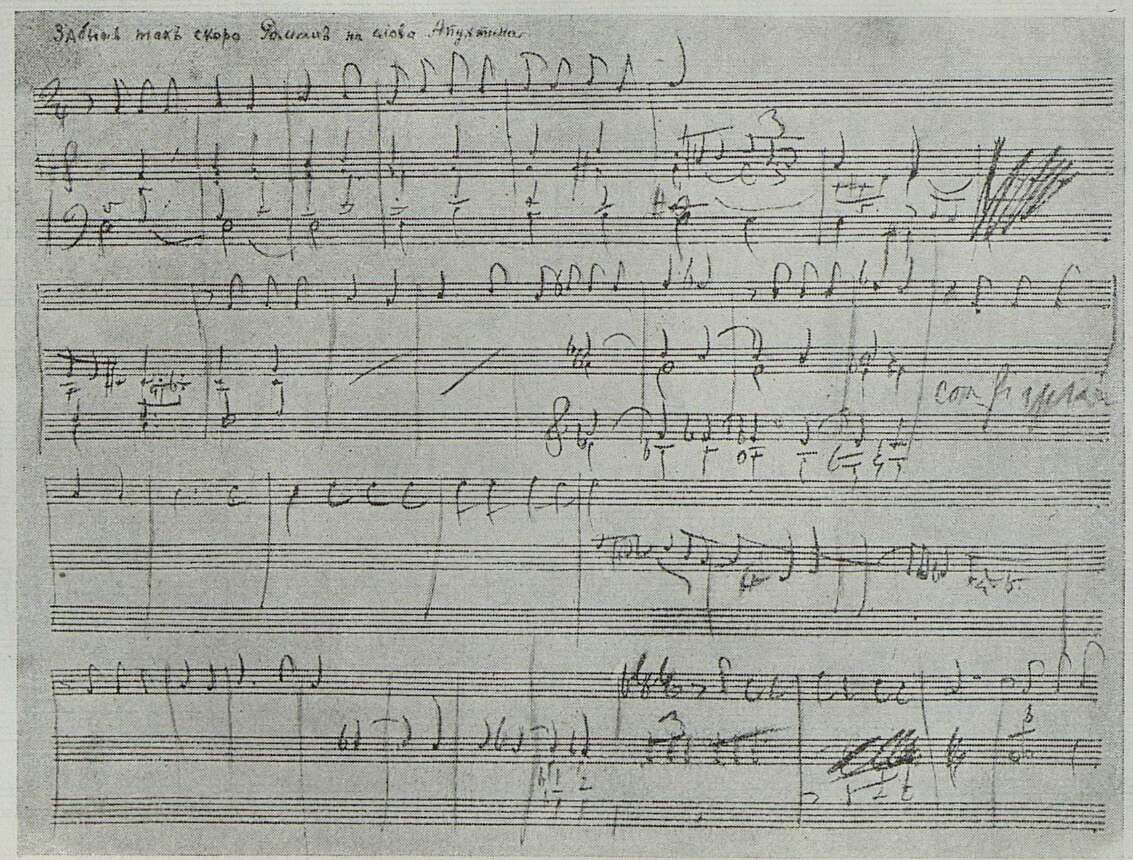 Забыть такъ скоро Романсъ на слова Апухтина